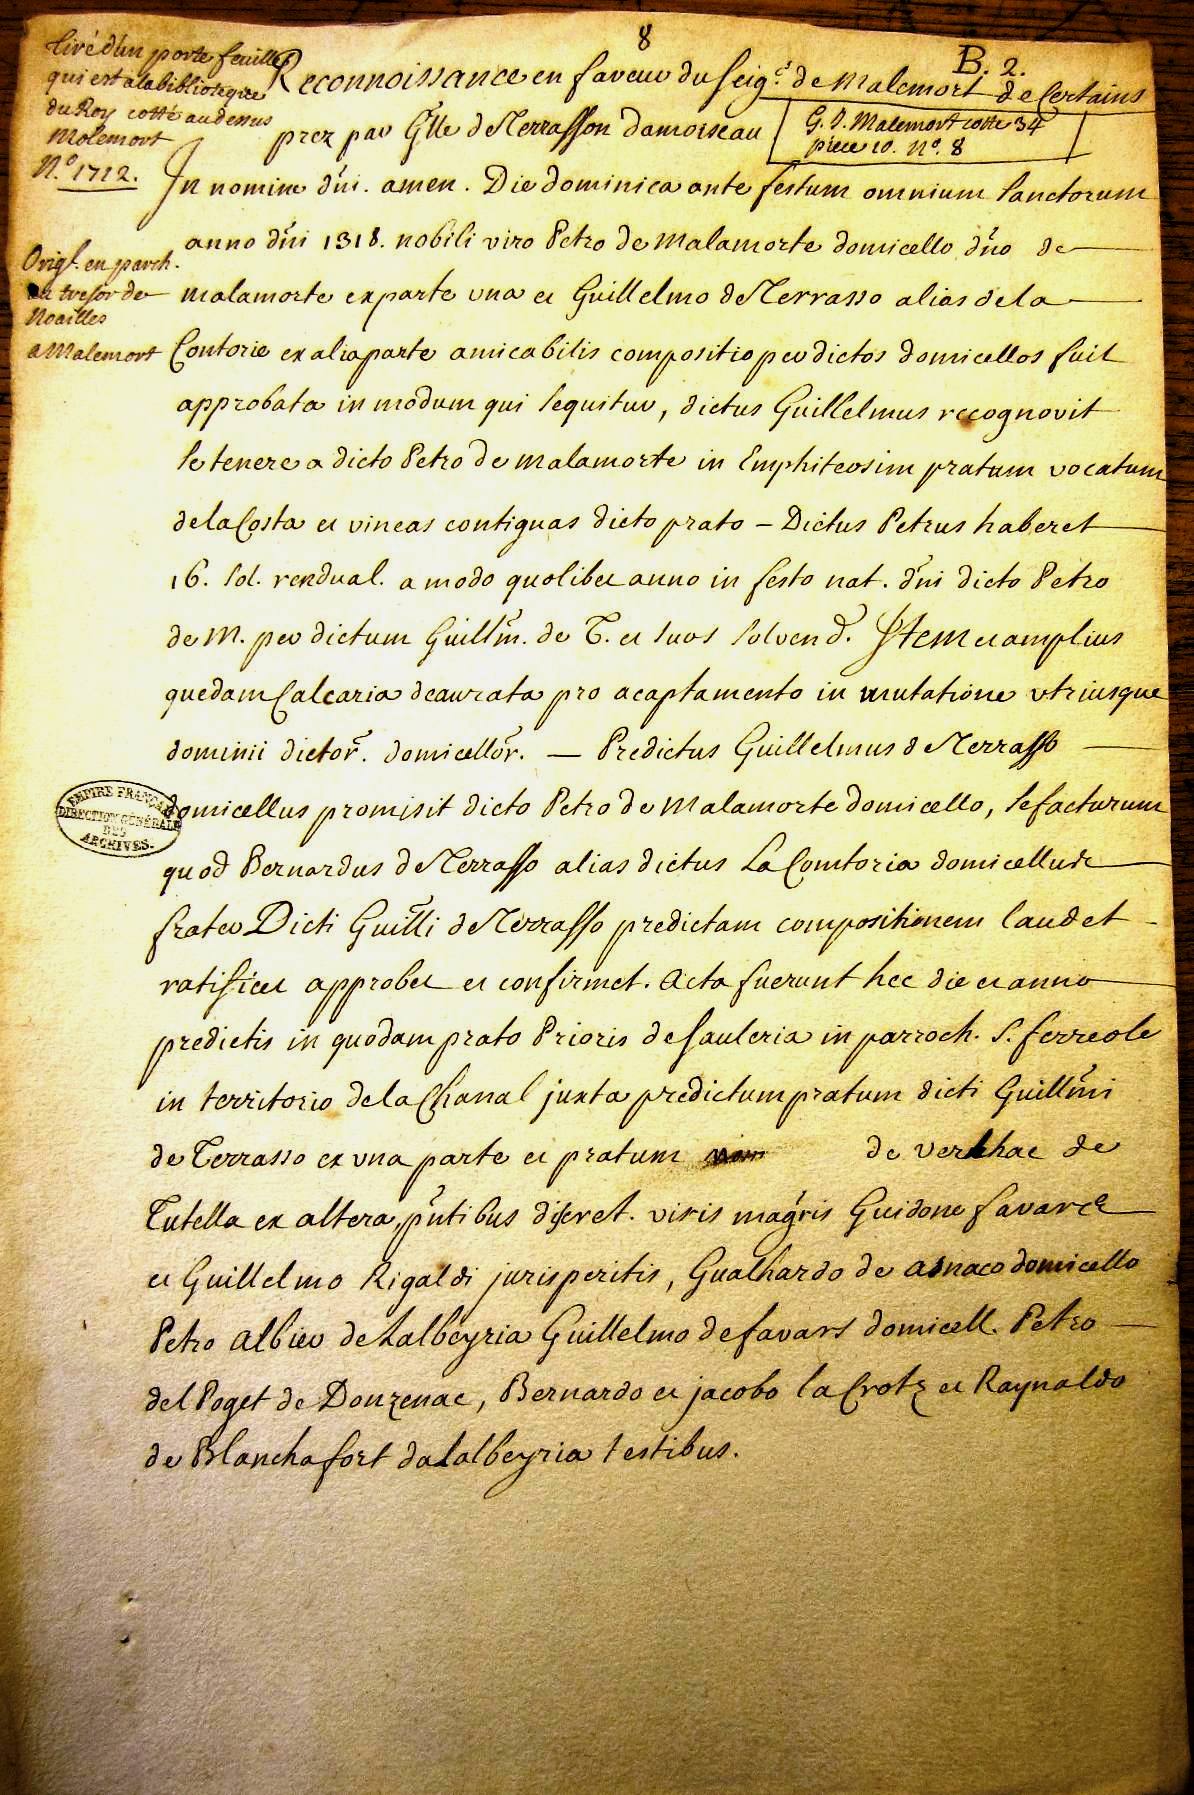 8
B. 2.
Tiré d'un porte feuille
qui est a la biblioteque
du Roy cotté au dessus
Molemort
N.º 1712.
Reconnoissance en faveur du seig.r de Malemort de Certains
prez par Glle de Terrasson damoiseau
G. J. Malemort cotte 34
piece 10. Nº. 8
In nomine dni. amen. Die dominica ante festum omnium sanctorum
anno dni 1318. nobili viro Petro de malamorte domicello dno de
Origl. en parch.
au tresor de
Noailles
a Malemort
malamorte ex parte una et Guillelmo de Terrasso alias de la
Contorie ex alia parte amicabilis compositio per dictos domicellos fuit
approbata in modum qui sequitur, dictus Guillelmus recognovit
se tenere a dicto Petro de malamorte in Emphiteosim pratum vocatum
de la Costa et vineas contiguas dicto prato - Dictus Petrus haberet
16. sol. rendual. a modo quolibet anno in festo nat. dni dicto Petro
de M. per dictum Guillm. de T. et suos solvend. Item et amplius
quedam Calcaria deaurata pro acaptamento in mutatione utriusque
dominii dictor. domicellor. — Predictus Guillelmus de Terrasso
domicellus promisit dicto Petro de Malamorte domicello, se facturum
EMPIRE FRANÇAIS
DIRECTION GÉNÉRALE
DES
ARCHIVES.
quod Bernardus de Terrasso alias dictus La Comtoria domicellus
frater Dicti Guilli de Terrasso predictam compositionem laudet
ratificet approbet et confirmet. Acta fuerunt hec die et anno
predictis in quodam prato Prioris de Sauleria in parroch. S. ferreole
in territorio de la Chanal juxta predictum pratum dicti Guillmi
de Terrasso ex una parte et pratum de verlhac de
Tutella ex altera, pntibus discret. viris magris Guidone favarel
et Guillelmo Rigaldi jurisperitis, Gualhardo de asnaco domicello
Petro albier de Lalbeyria Guillelmo de favars domicell. Petro
del Poget de Donzenac, Bernardo et jacobo la Crotz et Raynaldo
de Blanchafort da lalbeyria testibus.